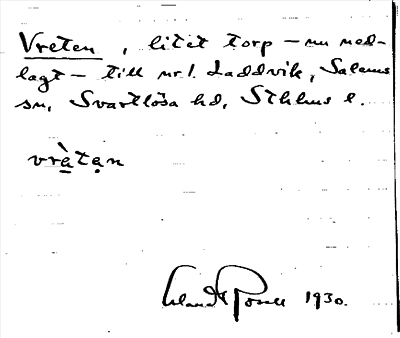 Vreten, litet torp – nu ned-
lagt – till nr. 1. Laddvik, Salems
sn, Svartlösa hd, Sthlms l.
vrà̱tạn
Erland Rosell 1930.